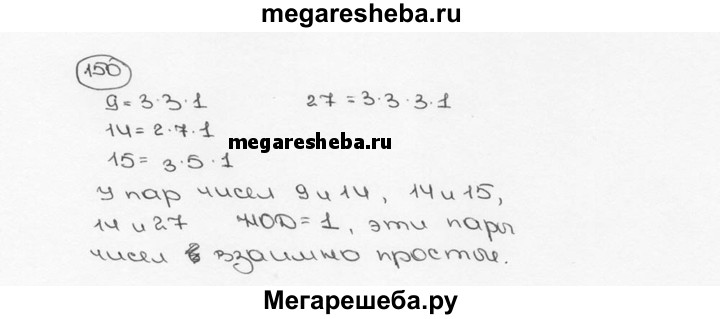 megaresheba.ru
150
9 = 3·3·1 27 = 3·3·3·1
14 = 2·7·1
megaresheba.ru
15 = 3·5·1
У пар чисел 9 и 14, 14 и 15,
14 и 27 НОД = 1, эти пары
чисел взаимно простые.
Мегарешеба.ру